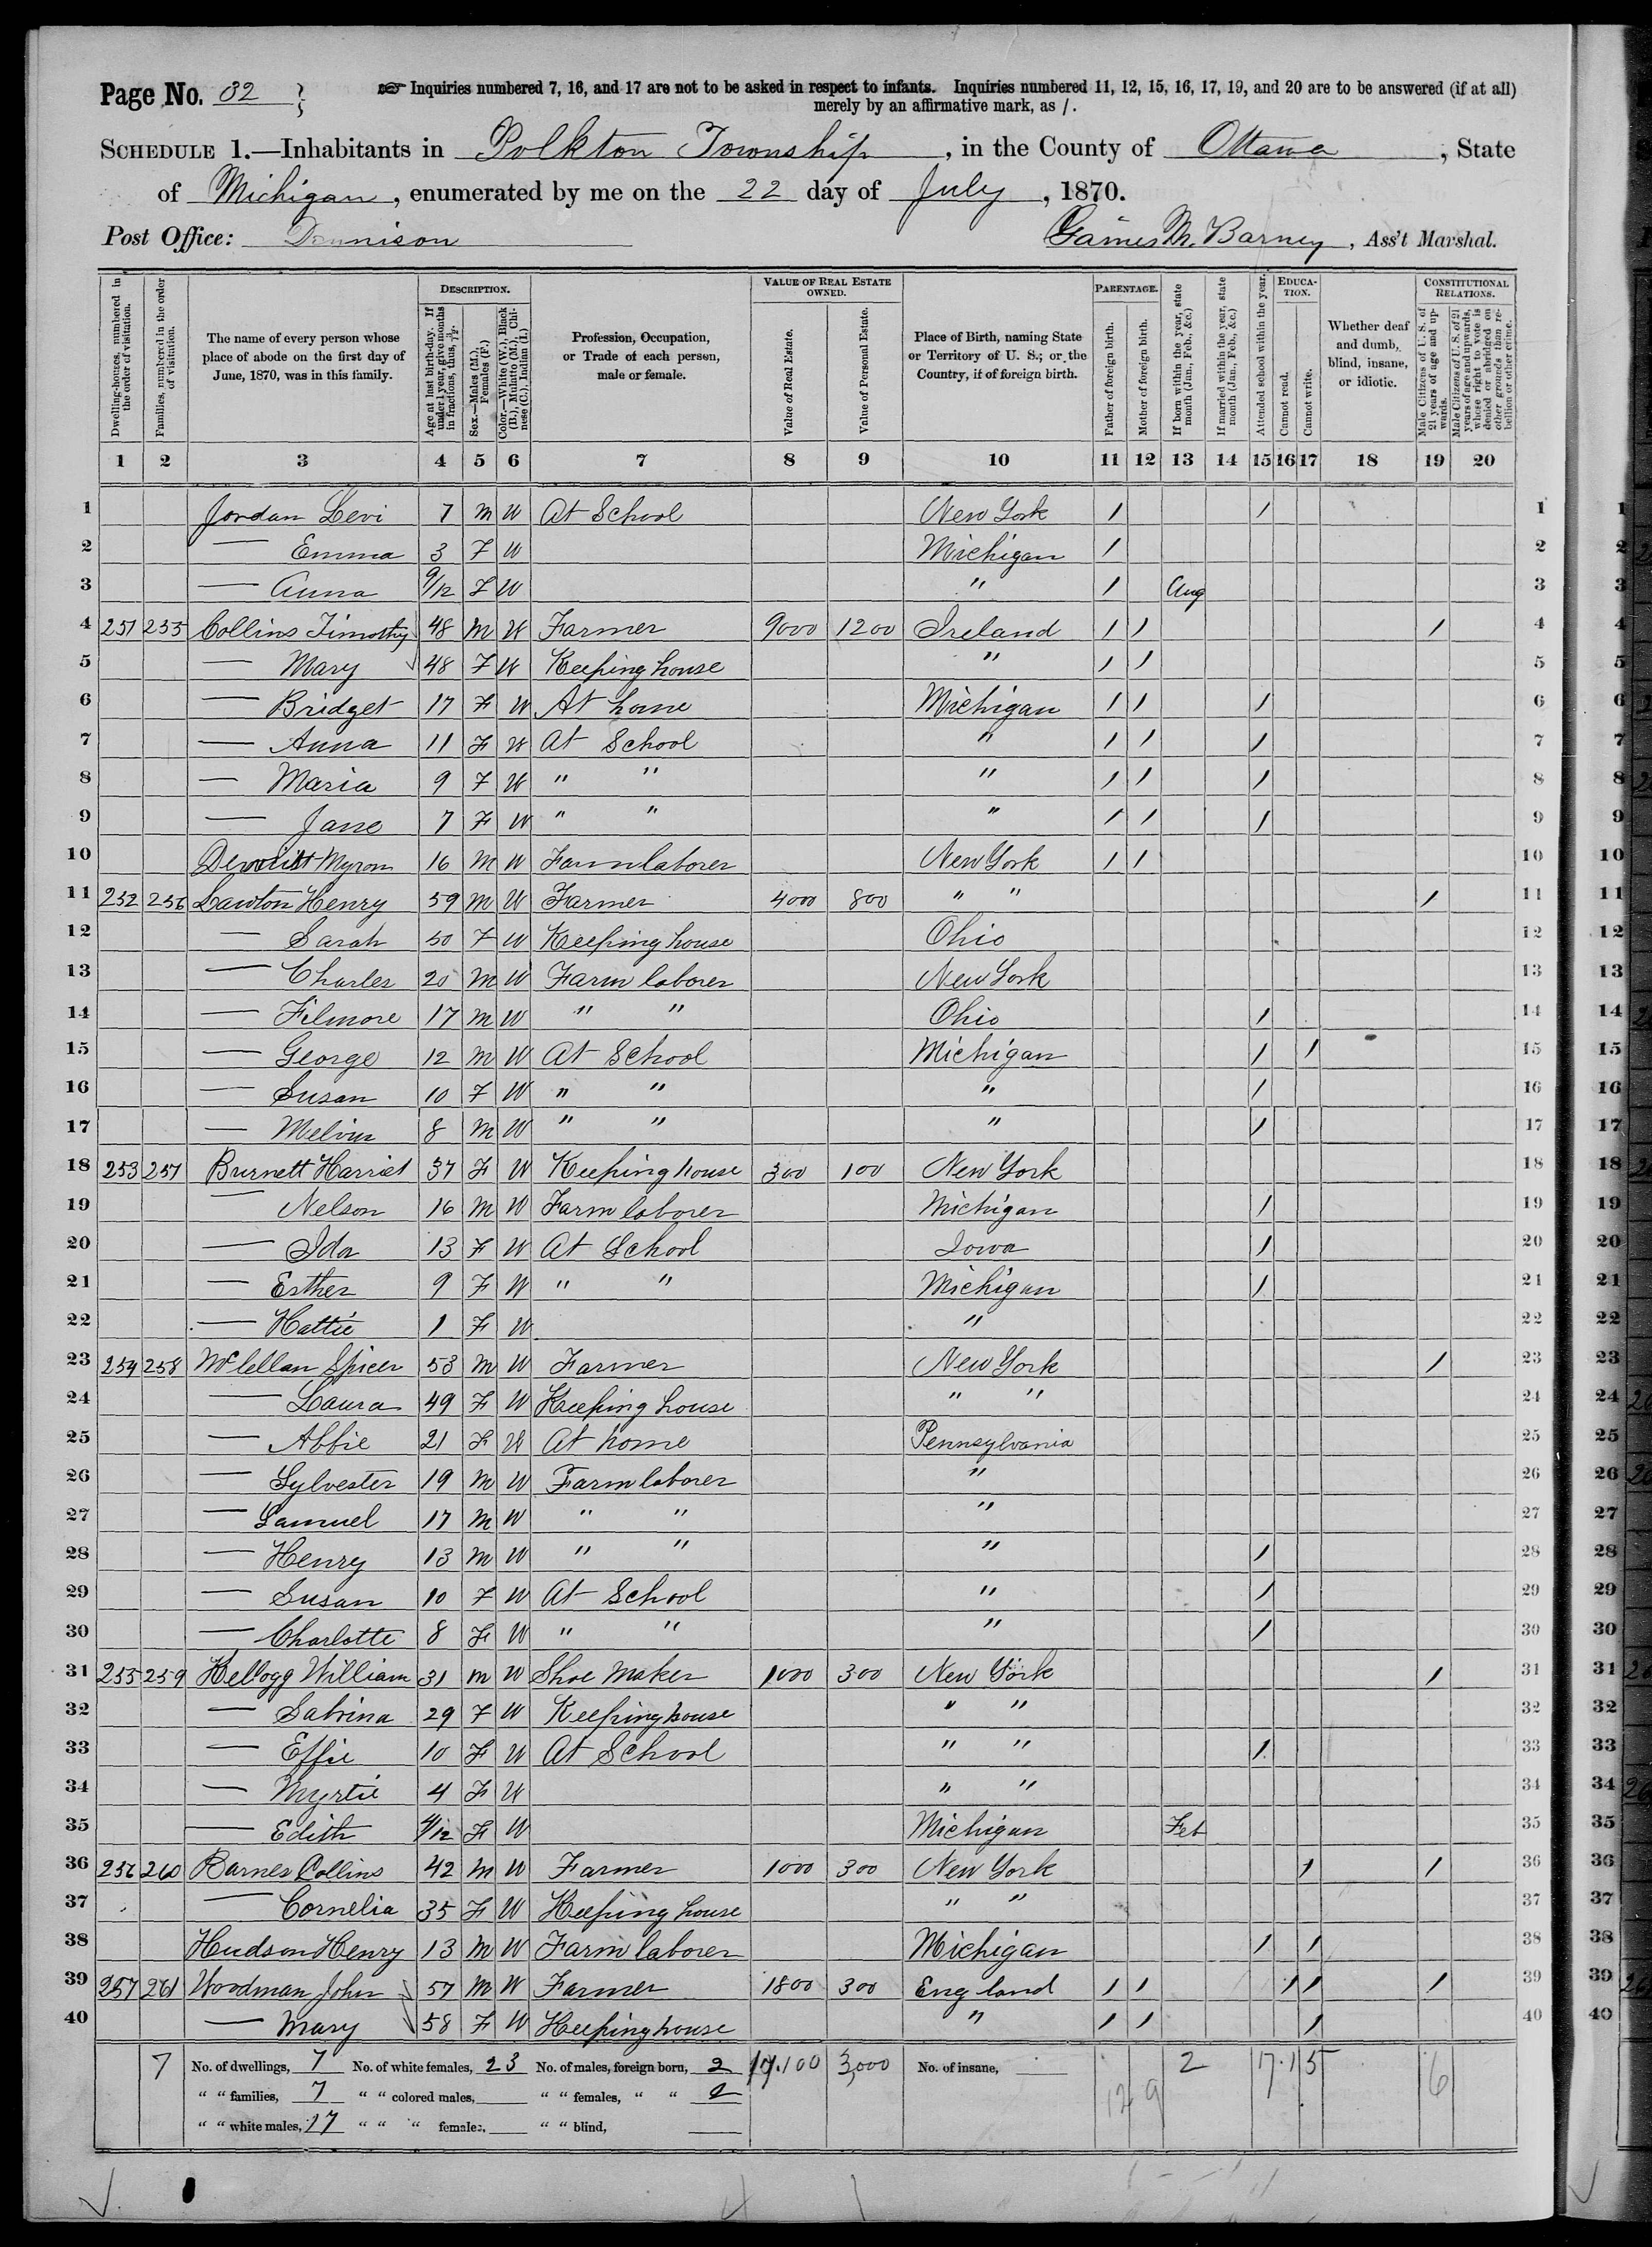 Page No. 32 } ☞ Inquiries numbered 7, 16, and 17 are not to be asked in respect to infants. Inquiries numbered 11, 12, 15, 16, 17, 19, and 20 are to be answered (if at all)
merely by an affirmative mark, as /.
SCHEDULE 1.—Inhabitants in Polkton Township, in the County of Ottawa, State
of Michigan, enumerated by me on the 22 day of July, 1870.
Post Office: Dennison James M. Barney, Ass't Marshal.
Dwelling-houses, numbered in the order of visitation.
Families, numbered in the order of visitation.
The name of every person whose place of abode on the first day of June, 1870, was in this family.
DESCRIPTION.
Age at last birth-day. If under 1 year, give months in fractions, thus, 3/12.
Sex.—Males (M.), Females (F.)
Color.—White (W.), Black (B.), Mulatto (M.), Chinese (C.), Indian (I.)
Profession, Occupation, or Trade of each person, male or female.
VALUE OF REAL ESTATE OWNED.
Value of Real Estate.
Value of Personal Estate.
Place of Birth, naming State or Territory of U. S.; or the Country, if of foreign birth.
PARENTAGE.
Father of foreign birth.
Mother of foreign birth.
If born within the year, state month (Jan., Feb., &c.)
If married within the year, state month (Jan., Feb., &c.)
Attended school within the year.
EDUCATION.
Cannot read.
Cannot write.
Whether deaf and dumb, blind, insane, or idiotic.
CONSTITUTIONAL RELATIONS.
Male Citizens of U. S. of 21 years of age and upwards.
Male Citizens of U. S. of 21 years of age and upwards, whose right to vote is denied or abridged on other grounds than rebellion or other crime.
1 2 3 4 5 6 7 8 9 10 11 12 13 14 15 16 17 18 19 20
1 Jordan Levi 7 M W At School New York / / 1
2 — Emma 3 F W Michigan / 2
3 — Anna 9/12 F W " / Aug 3
4 251 255 Collins Timothy 48 M W Farmer 9000 1200 Ireland / / / 4
5 — Mary 48 F W Keeping house " / / 5
6 — Bridget 17 F W At home Michigan / / / 6
7 — Anna 11 F W At School " / / / 7
8 — Maria 9 F W " " " / / / 8
9 — Jane 7 F W " " " / / / 9
10 Myron 16 M W Farm laborer New York / / 10
11 252 256 Lawton Henry 59 M W Farmer 4000 800 " " / 11
12 — Sarah 50 F W Keeping house Ohio 12
13 — Charles 20 M W Farm laborer New York 13
14 — Filmore 17 M W " " Ohio / 14
15 — George 12 M W At School Michigan / / 15
16 — Susan 10 F W " " " / 16
17 — Melvin 8 M W " " " / 17
18 253 257 Burnett Harriet 37 F W Keeping house 300 100 New York 18
19 — Nelson 16 M W Farm laborer Michigan / 19
20 — Ida 13 F W At School Iowa / 20
21 — Esther 9 F W " " Michigan / 21
22 — Hattie 1 F W " 22
23 254 258 Mclellan Spicer 53 M W Farmer New York / 23
24 — Laura 49 F W Keeping house " " 24
25 — Abbie 21 F W At home Pennsylvania 25
26 — Sylvester 19 M W Farm laborer " 26
27 — Samuel 17 M W " " " 27
28 — Henry 13 M W " " " / 28
29 — Susan 10 F W At School " / 29
30 — Charlotte 8 F W " " " / 30
31 255 259 Kellogg William 31 M W Shoe Maker 1000 300 New York / 31
32 — Sabrina 29 F W Keeping house " " 32
33 — Effie 10 F W At School " " / 33
34 — Myrtie 4 F W " " 34
35 — Edith 4/12 F W Michigan Feb 35
36 256 260 Barnes Collins 42 M W Farmer 1000 300 New York / / 36
37 — Cornelia 35 F W Keeping house " " 37
38 Hudson Henry 13 M W Farm laborer Michigan / / 38
39 257 261 Woodman John 57 M W Farmer 1800 300 England / / / / / 39
40 — Mary 58 F W Keeping house " / / / 40
7 No. of dwellings, 7 No. of white females, 23 No. of males, foreign born, 2 17.100 3,000 No. of insane, 12 9 2 17 1 5 6
" " families, 7 " " colored males, " " females, " " 2
" " white males, 17 " " " females, " " blind,